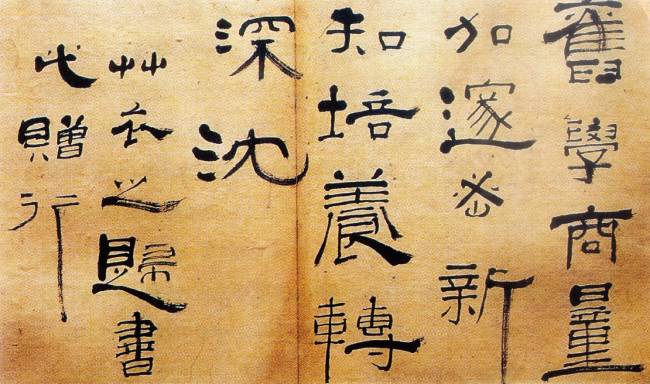 舊學商量
加邃密新
知培養轉
深沈
艸衣之歸書
以贈行